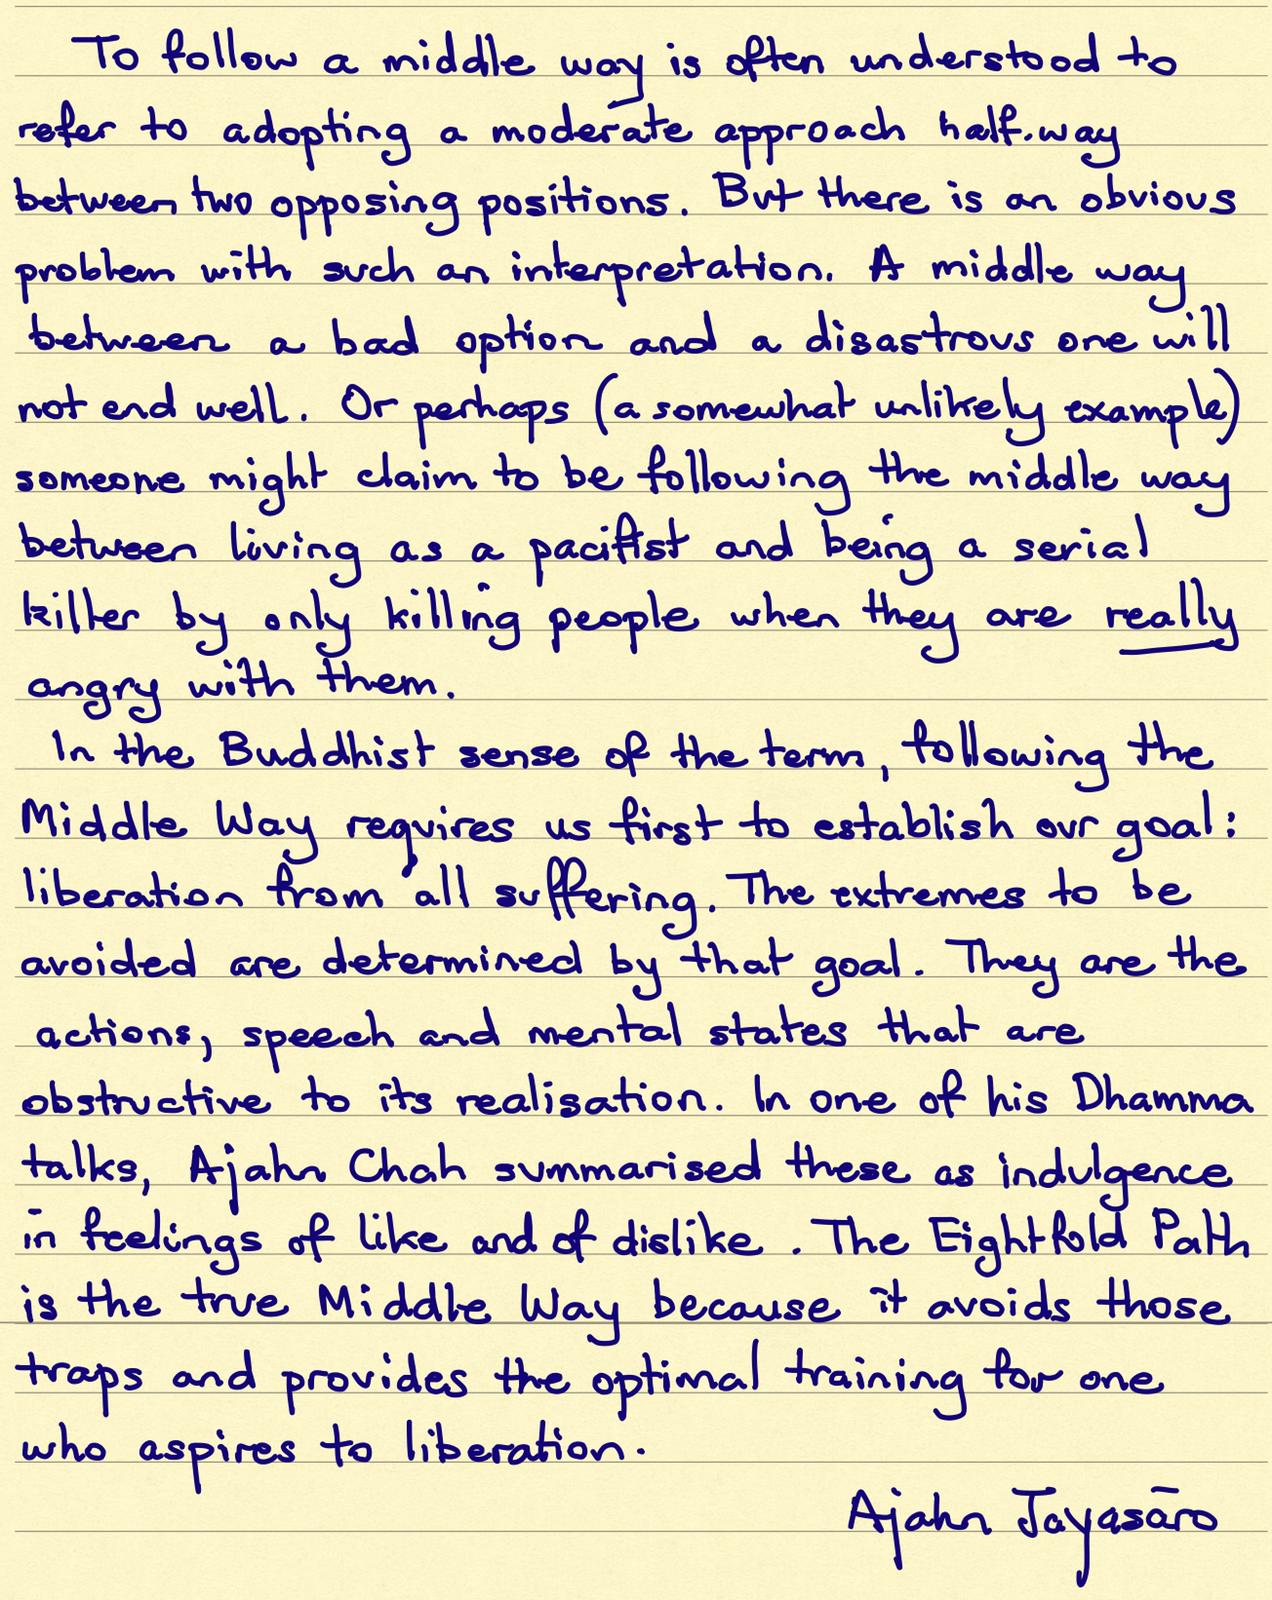 To follow a middle way is often understood to
refer to adopting a moderate approach half-way
between two opposing positions. But there is an obvious
problem with such an interpretation. A middle way
between a bad option and a disastrous one will
not end well. Or perhaps (a somewhat unlikely example)
someone might claim to be following the middle way
between living as a pacifist and being a serial
killer by only killing people when they are really
angry with them.
In the Buddhist sense of the term, following the
Middle Way requires us first to establish our goal:
liberation from all suffering. The extremes to be
avoided are determined by that goal. They are the
actions, speech and mental states that are
obstructive to its realisation. In one of his Dhamma
talks, Ajahn Chah summarised these as indulgence
in feelings of like and of dislike. The Eightfold Path
is the true Middle Way because it avoids those
traps and provides the optimal training for one
who aspires to liberation.
Ajahn Jayasāro